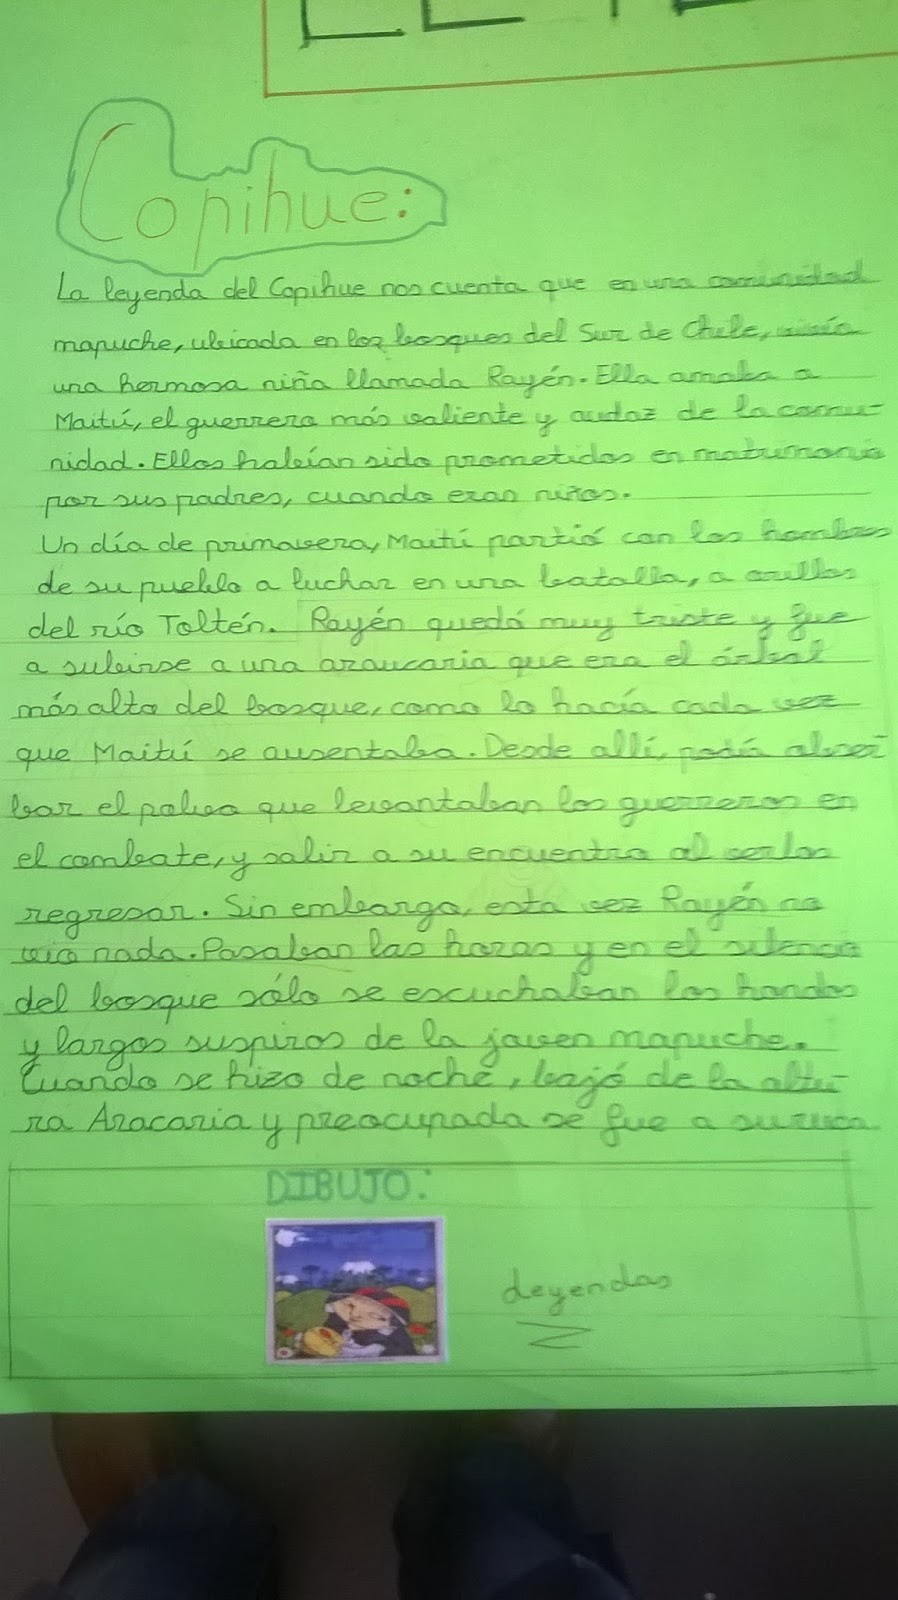 Copihue:
La leyenda del Copihue nos cuenta que en una comunidad
mapuche, ubicada en los bosques del Sur de Chile, vivía
una hermosa niña llamada Rayén. Ella amaba a
Maitú, el guerrero más valiente y audaz de la comu-
nidad. Ellos habían sido prometidos en matrimonio
por sus padres, cuando eran niños.
Un día de primavera, Maitú partió con los hombres
de su pueblo a luchar en una batalla, a orillas
del río Toltén. Rayén quedó muy triste y fue
a subirse a una araucaria que era el árbol
más alto del bosque, como lo hacía cada vez
que Maitú se ausentaba. Desde allí, podía
bar el polvo que levantaban los guerreros en
el combate, y salir a su encuentro al verlos
regresar. Sin embargo, esta vez Rayén no
vio nada. Pasaban las horas y en el silencio
del bosque sólo se escuchaban los hondos
y largos suspiros de la joven mapuche.
Cuando se hizo de noche, bajó de la altu-
ra Aracaria y preocupada se fue a su ruca
DIBUJO:
Leyendas